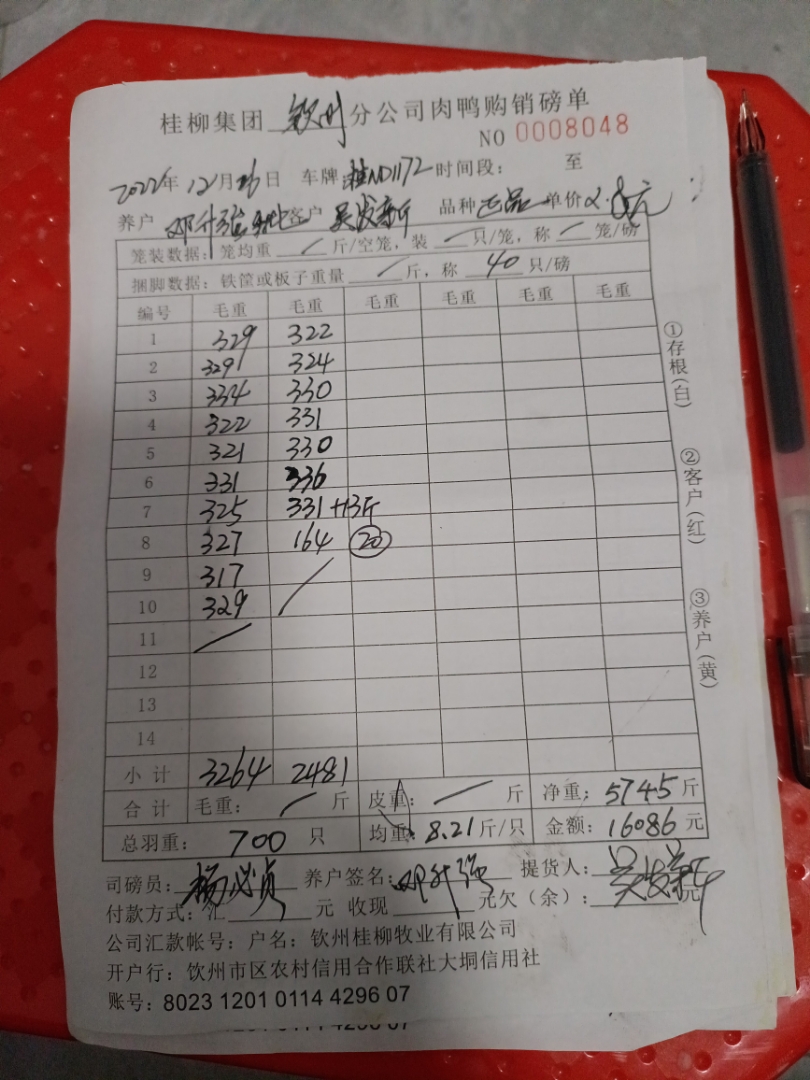 桂柳集团 钦州 分公司肉鸭购销磅单
NO 0008048
2022年 12月26日 车牌:桂ND1172 时间段: 至
养户 邓升强 客户 吴发新 品种 正品 单价 2.8元
笼装数据: 笼均重 / 斤/空笼, 装 / 只/笼, 称 / 笼/磅
捆脚数据: 铁筐或板子重量 / 斤, 称 40 只/磅
编号 毛重 毛重 毛重 毛重 毛重 毛重
1 329 322
2 329 324
3 334 330
4 322 331
5 321 330
6 331 336
7 325 331+13斤
8 327 164 20
9 317 /
10 329
11 /
12
13
14
小计 3264 2481
合计 毛重: / 斤 皮重: / 斤 净重: 5745 斤
总羽重: 700 只 均重: 8.21 斤/只 金额: 16086 元
司磅员: 杨必贞 养户签名: 邓升强 提货人: 吴发新
付款方式: 汇 元 收现 元欠(余): 元
公司汇款帐号: 户名: 钦州桂柳牧业有限公司
开户行: 钦州市区农村信用合作联社大垌信用社
账号: 8023 1201 0114 4296 07
①存根(白)
②客户(红)
③养户(黄)